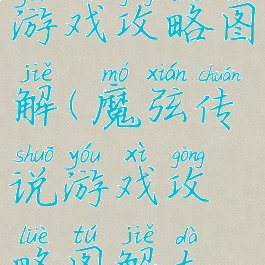 游戏攻略图
jiě mó xián chuán
解(魔弦传
shuō yóu xì gōng
说游戏攻
lüè tú jiě dà
略图解大